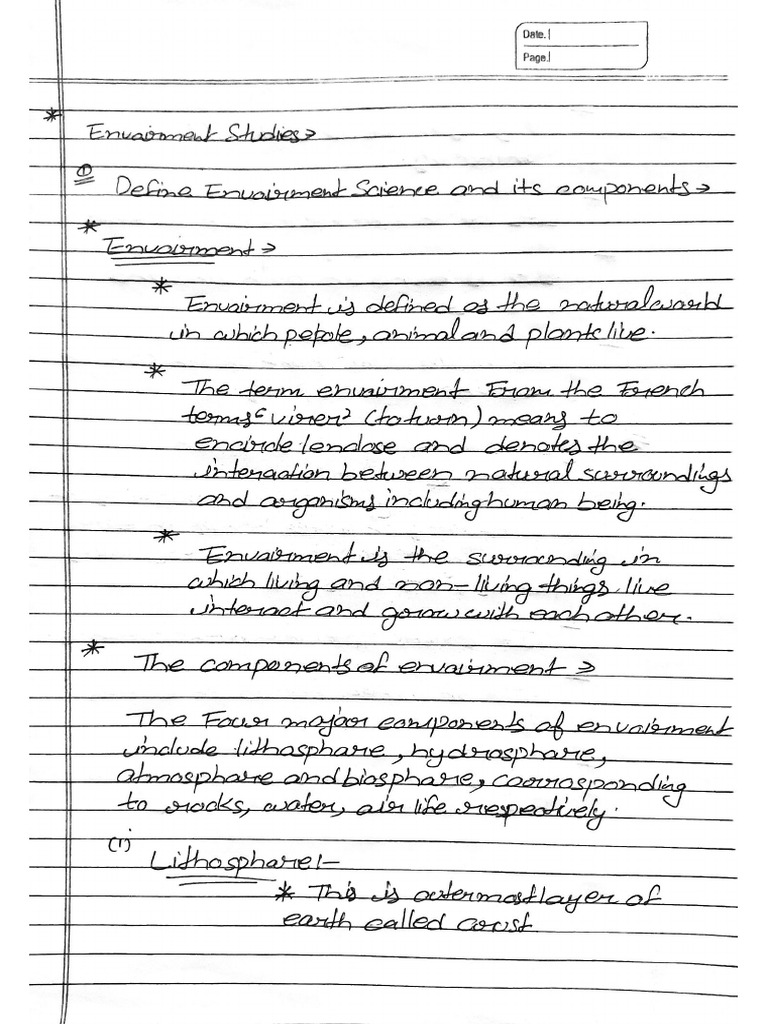 Date.
Page.
* Envairment Studies→
① Define Envairment Science and its components→
* Envairment→
* Envairment is defined as the natural world
in which pepole, animal and plants live.
* The term envairment From the French
terms "virer" (to turn) means to
encircle / enclose and denotes the
interaction between natural surroundings
and organisms including human being.
* Envairment is the surrounding in
which living and non-living things live
interact and grow with each other.
* The components of envairment→
The Four major components of envairment
include lithosphare, hydrosphare,
atmosphare and biosphare, corrosponding
to rocks, water, air life respectively.
(1) Lithosphare:-
* This is outermost layer of
earth called crust